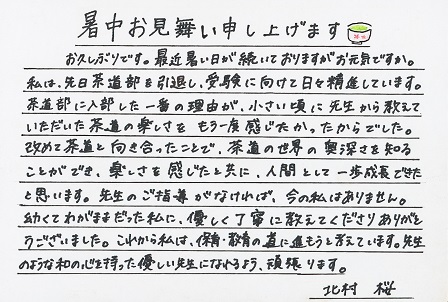 暑中お見舞い申し上げます
お久しぶりです。最近暑い日が続いておりますがお元気ですか。
私は、先日茶道部を引退し、受験に向けて日々精進しています。
茶道部に入部した一番の理由が、小さい頃に先生から教えて
いただいた茶道の楽しさをもう一度感じたかったからでした。
改めて茶道と向き合ったことで、茶道の世界の奥深さを知る
ことができ、楽しさを感じたと共に、人間として一歩成長できた
と思います。先生のご指導がなければ、今の私はありません。
幼くてわがままだった私に、優しく丁寧に教えてくださりありがと
うございました。これから私は、保育・教育の道に進もうと考えています。先生
のような和の心を持った優しい先生になれるよう、頑張ります。
北村 桜